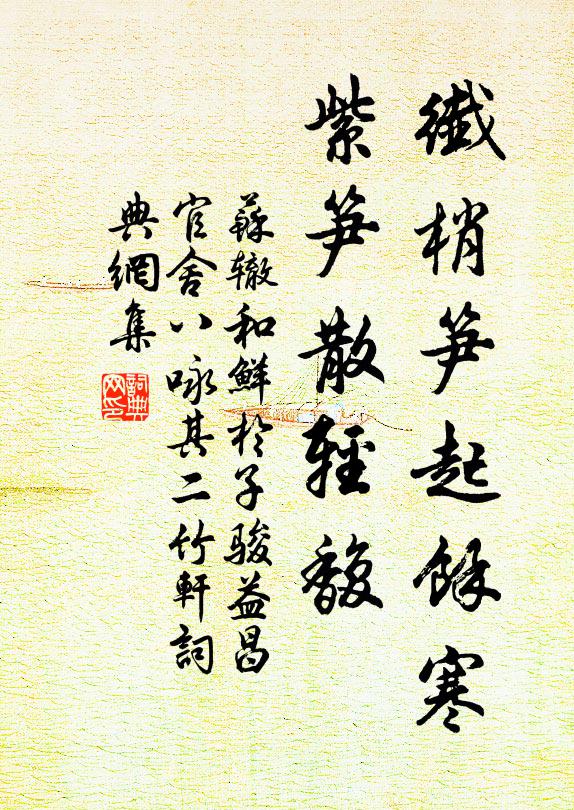 纖梢笋起餘寒
紫笋散輕馥
蘇辙和鮮於子駿益昌
官舍八咏其二竹軒詞
典網集
詞典
网印